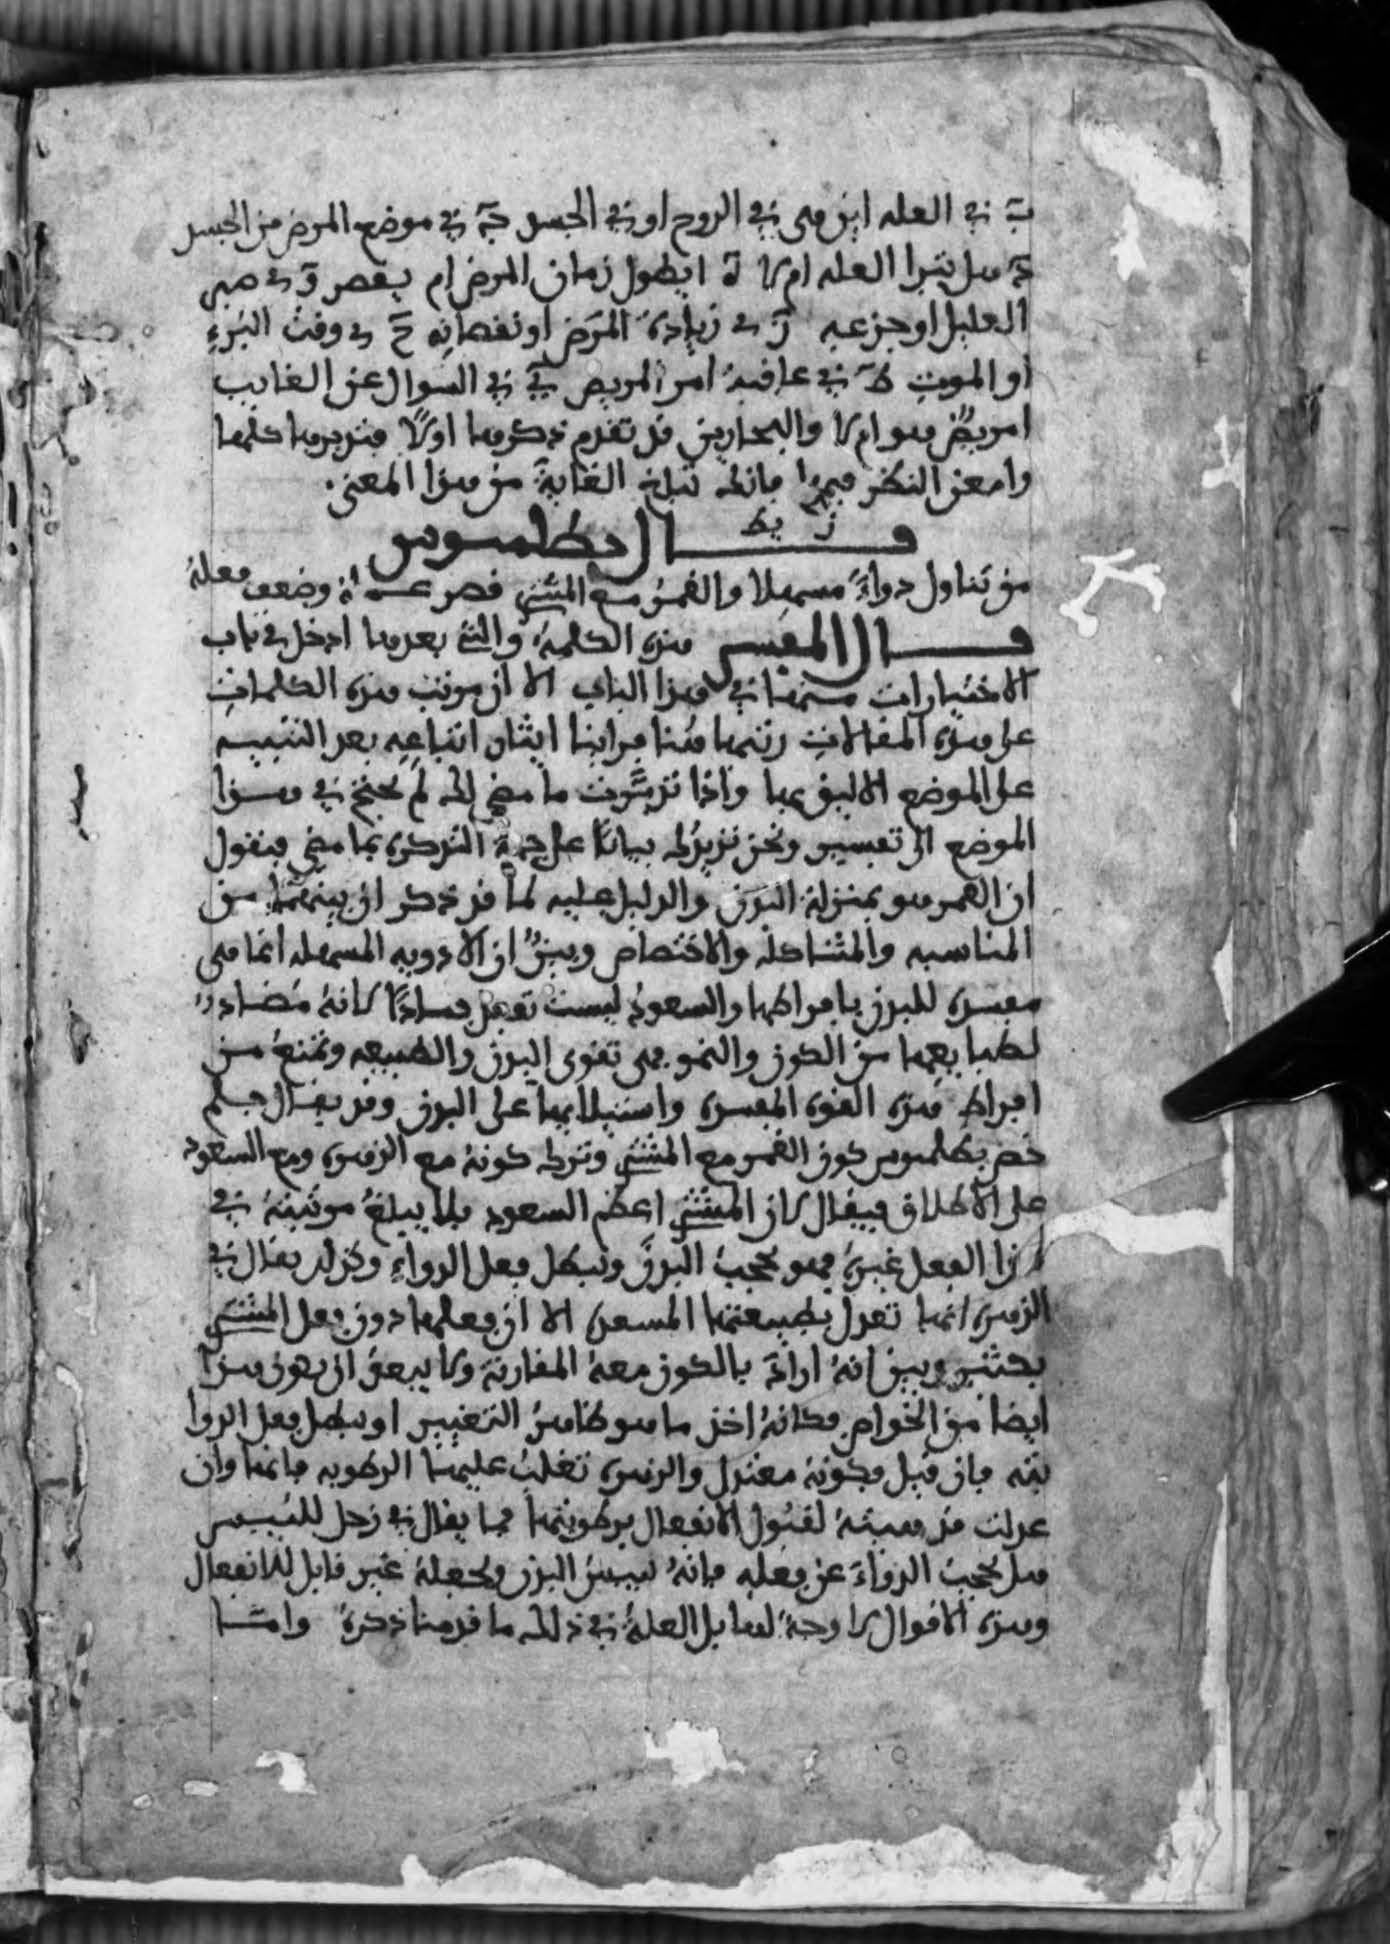 بَ في العله اين هى في الروح او في الجسد جَ في موضع المرض من الجسد
دَ هل يبرا العله ام لا هَ ايطول زمان المرض ام يقصر وَ في صبر
العليل او جزعه زَ في زيادة المرض او نقصانه حَ في وقت البُرء
او الموت طَ في عاقبة امر المريض يَ في السوال عن الغايب
امريضٌ هو ام لا والبحارين قد تقدم ذكرها اولًا فتدبرها كلها
وامعن النظر فيها فانك تبلغ الغاية من هذا المعنى.
يط
قـــال بطلميوس
من تناول دواءً مسهلا والقمر مع المشتري قصر عـ...ـه وضعف فعله
قـــال المفسر هذه الكلمة والتي بعدها ادخل في باب
الاختيارات منهما في هذا الباب الا ان مرتب هذه الكلمات
على هذه المقالات رتبها هنا فراينا ايثار اتباعه بعد التنبيه
على الموضع الاليق بها واذا تدبَّرت ما مضى لك لم تحتج في هـذا
الموضع الى تفسير ونحن نزيدك بيانًا على جهة التذكرة بما مضى فنقول
ان القمر هو بمنزلة البدن والدليل عليه لما قد ذكر ان بينهما من
المناسبه والمشاكله والاختصاص وبيّنٌ ان الادويه المسهله انما هى
مفسده للبدن بافراطها والسعود ليست تفعل فسادًا لانه مُضادد
لطبايعها من الكون والنمو فهى تقوى البدن والطبيعه وتمنع من
افراط هذه القوه المفسده واستيلايها على البدن وقد يقال فلم
خص بطلميوس كون القمر مع المشتري وترك كونه مع الزهره ومع السعود
على الاطلاق فيقال لان المشتري اعظم السعود فلا يبلغ مرتبته في
هذا الفعل غيره فهو يحجب البدن ويبطل فعل الدواء وكذلك يقال في
الزهره انها تفعل بطبيعتها المسعده الا ان فعلها دون فعل المشتري
بكثير وبين انه اراد بالكون معه المقارنة ولا يبعد ان يكون هذا
ايضا من الخواص فكانه اخذ ما هو ظاهر التغيير او يبطل فعل الدوا
بته فان قيل فكونه معتدل والزهره تغلب عليها الرطوبه فانها وان
عدلت قد هيئته لقبُول الانفعال برطوبتها فما يقال في زحل لليبس
هل يحجب الدواءَ عن فعله فانه ييبس البدن ويجعله غير قابل للانفعال
وهذه الاقوال لا وجه لها بل العلة في ذلك ما قدمنا ذكره وامّـا